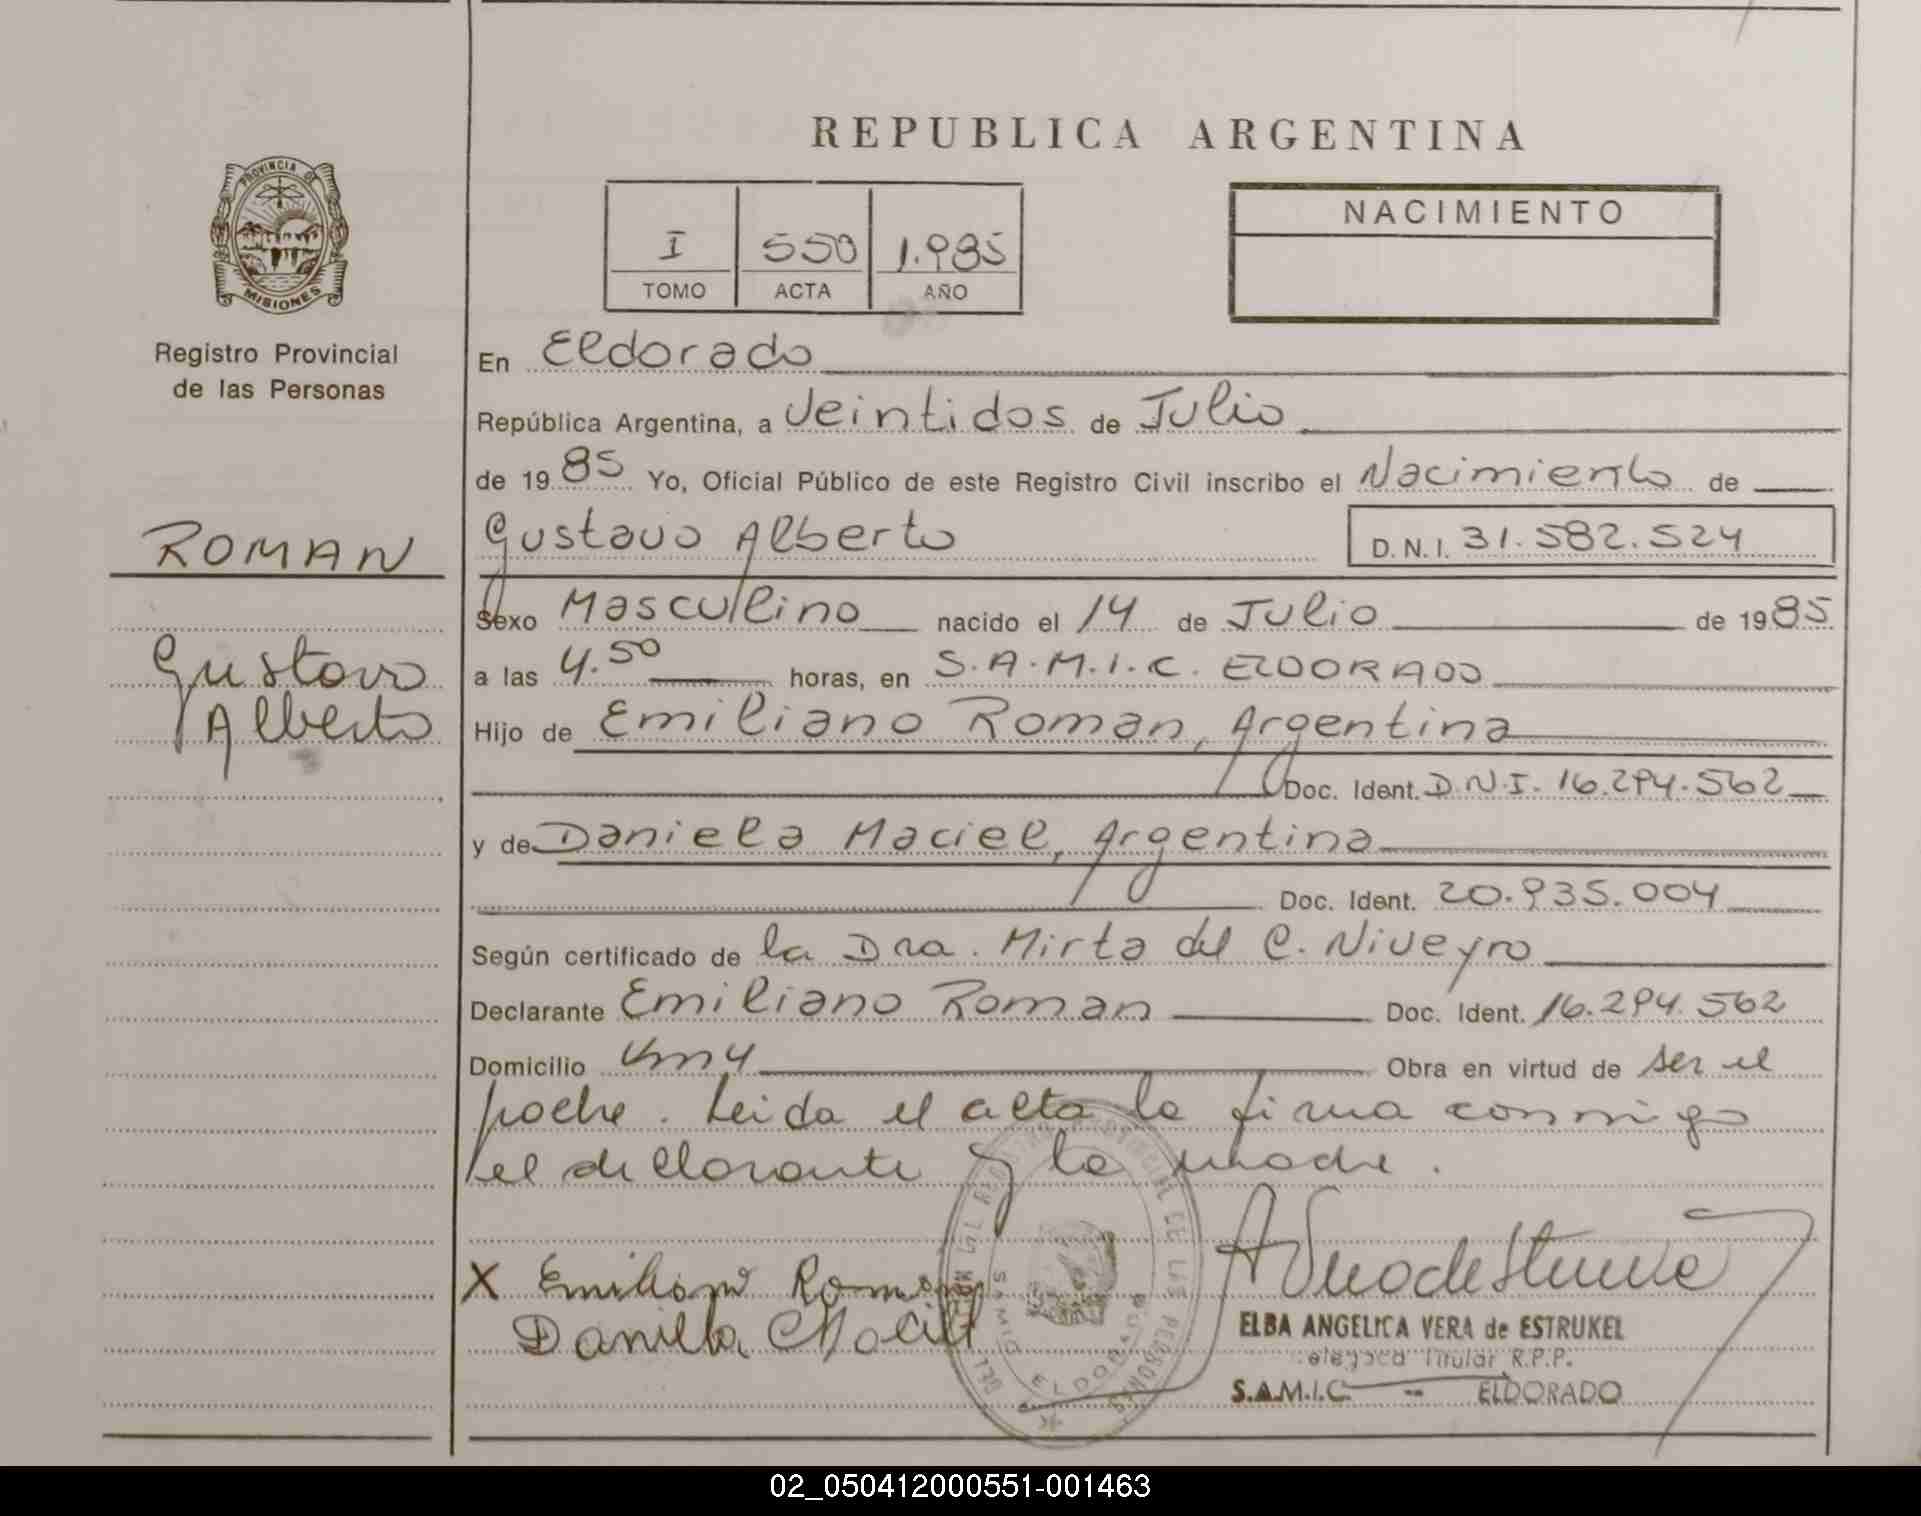 REPUBLICA ARGENTINA
PROVINCIA DE
MISIONES
Registro Provincial
de las Personas
ROMAN
Gustavo
Alberto
I 550 1.985
TOMO ACTA AÑO
NACIMIENTO
En Eldorado
República Argentina, a Veintidos de Julio
de 1985 Yo, Oficial Público de este Registro Civil inscribo el Nacimiento de
Gustavo Alberto D.N.I. 31.582.524
Sexo Masculino nacido el 14 de Julio de 1985
a las 4.50 horas, en S.A.M.I.C. ELDORADO
Hijo de Emiliano Roman, Argentina
Doc. Ident. D.N.I. 16.294.562
y de Daniela Maciel, Argentina
Doc. Ident. 20.935.004
Según certificado de la Dra. Mirta del C. Niveyro
Declarante Emiliano Roman Doc. Ident. 16.294.562
Domicilio Km 4 Obra en virtud de ser el
padre. Leida el acta la firma conmigo
el declarante y la madre.
X Emiliano Roman
Daniela Maciel
REGISTRO PROVINCIAL DE LAS PERSONAS
SAMIC ELDORADO
ELBA ANGELICA VERA de ESTRUKEL
Titular R.P.P.
S.A.M.I.C. -- ELDORADO
02_050412000551-001463